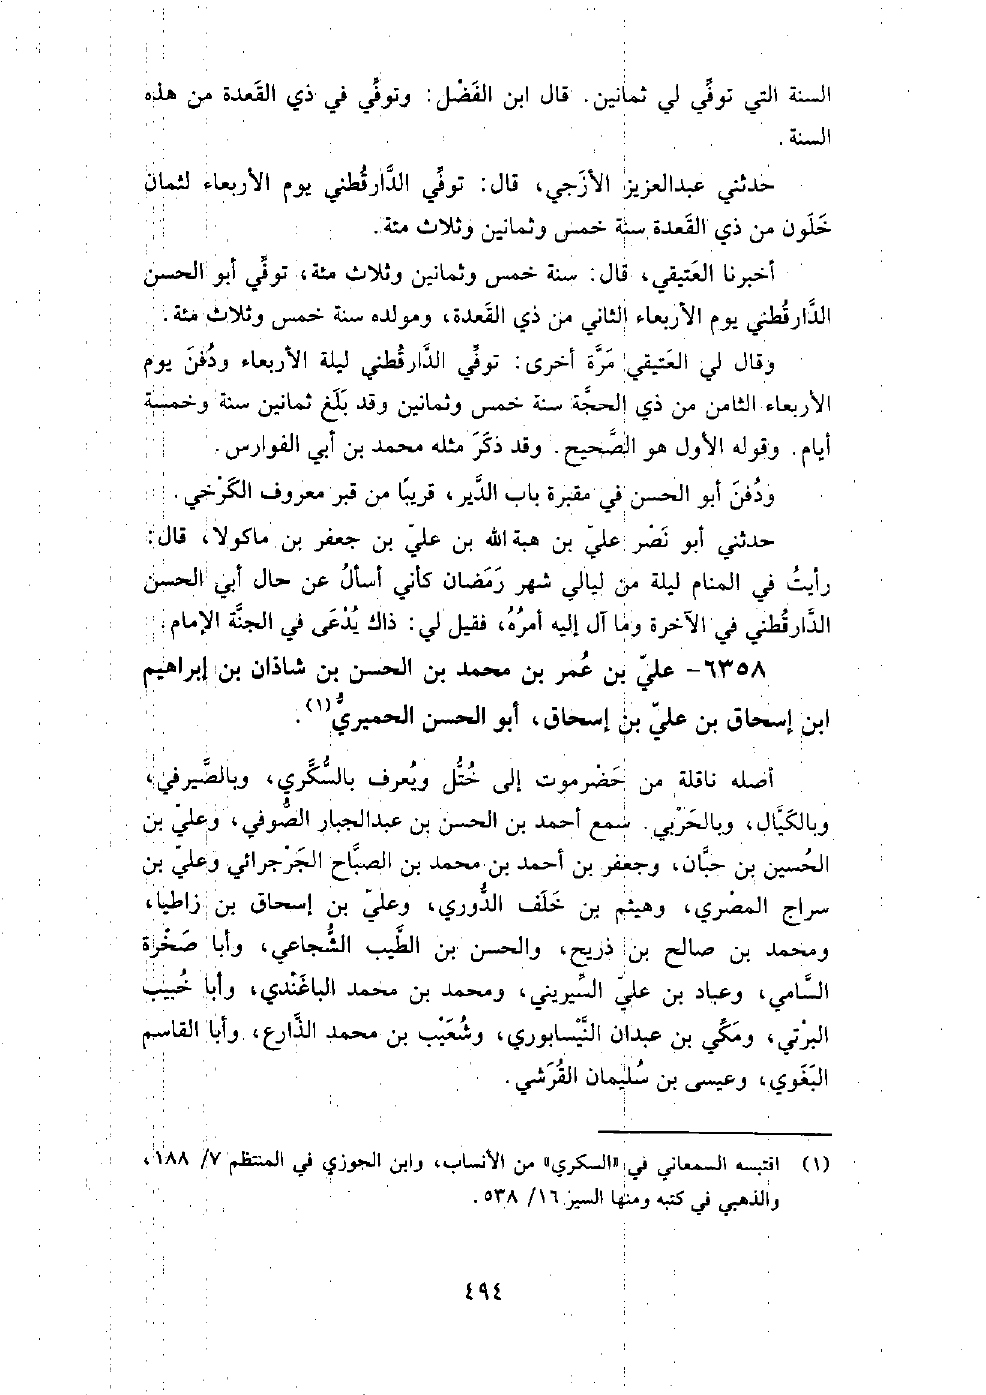 السنة التي توفِّي لي ثمانين. قال ابن الفَضْل: وتوفِّي في ذي القَعدة من هذه
السنة.
حدثني عبدالعزيز الأزَجي، قال: توفِّي الدَّارقُطني يوم الأربعاء لثمان
خَلَون من ذي القَعدة سنة خمس وثمانين وثلاث مئة.
أخبرنا العَتيقي، قال: سنة خمس وثمانين وثلاث مئة، توفِّي أبو الحسن
الدَّارقُطني يوم الأربعاء الثاني من ذي القَعدة، ومولده سنة خمس وثلاث مئة.
وقال لي العَتيقي مَرَّة أخرى: توفِّي الدَّارقُطني ليلة الأربعاء ودُفنَ يوم
الأربعاء الثامن من ذي الحجَّة سنة خمس وثمانين وقد بَلَغ ثمانين سنة وخمسة
أيام. وقوله الأول هو الصَّحيح. وقد ذكَرَ مثله محمد بن أبي الفوارس.
ودُفنَ أبو الحسن في مقبرة باب الدَّير، قريبًا من قبر معروف الكَرْخي.
حدثني أبو نَصْر عليّ بن هبة الله بن عليّ بن جعفر بن ماكولا، قال:
رأيتُ في المنام ليلة من ليالي شهر رَمَضان كأني أسألُ عن حال أبي الحسن
الدَّارقُطني في الآخرة وما آل إليه أمرُهُ، فقيل لي: ذاك يُدْعَى في الجنَّة الإمام.
٦٣٥٨- عليّ بن عُمر بن محمد بن الحسن بن شاذان بن إبراهيم
ابن إسحاق بن عليّ بن إسحاق، أبو الحسن الحميريُّ(١).
أصله ناقلة من حَضْرموت إلى خُتُّل ويُعرف بالسُّكَّري، وبالصَّيرفي،
وبالكَيَّال، وبالحَرْبي. سمع أحمد بن الحسن بن عبدالجبار الصُّوفي، وعليّ بن
الحُسين بن حبَّان، وجعفر بن أحمد بن محمد بن الصبَّاح الجَرْجرائي وعليّ بن
سراج المصْري، وهيثم بن خَلَف الدُّوري، وعليّ بن إسحاق بن زاطيا،
ومحمد بن صالح بن ذريح، والحسن بن الطَّيب الشُّجاعي، وأبا صَخْرة
السَّامي، وعباد بن عليّ السِّيريني، ومحمد بن محمد الباغَنْدي، وأبا خُبيب
البرْتي، ومَكِّي بن عبدان النَّيْسابوري، وشُعَيْب بن محمد الذَّارع، وأبا القاسم
البَغَوي، وعيسى بن سُليمان القُرَشي.
(١) اقتبسه السمعاني في «السكري» من الأنساب، وابن الجوزي في المنتظم ٧/ ١٨٨،
والذهبي في كتبه ومنها السير ١٦/ ٥٣٨.
٤٩٤